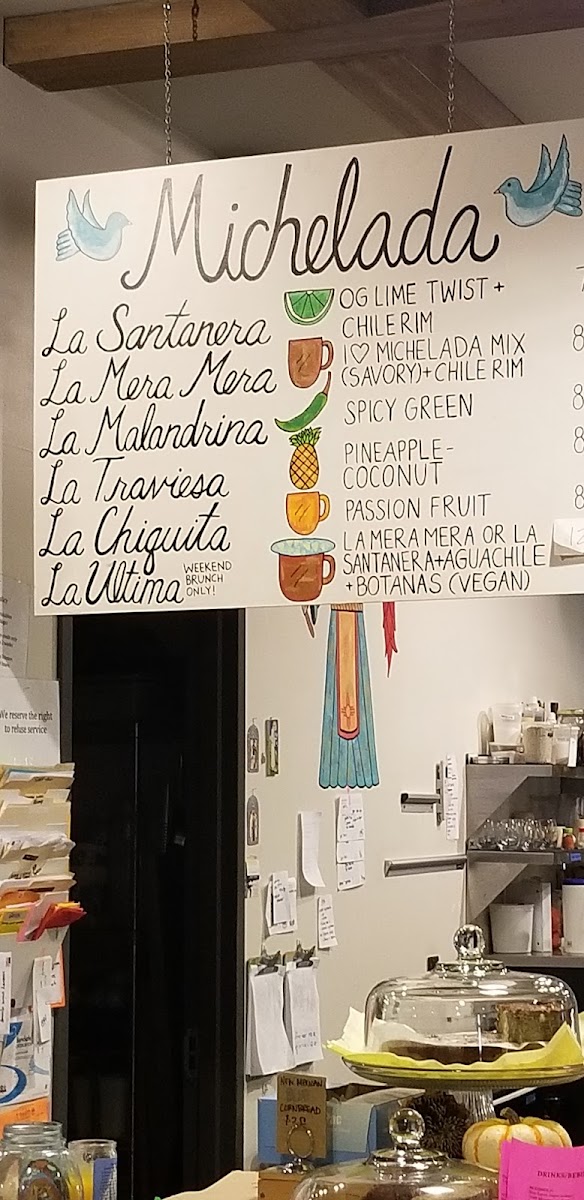 Michelada
La Santanera
OG LIME TWIST +
CHILE RIM
7
La Mera Mera
I ♡ MICHELADA MIX
(SAVORY) + CHILE RIM
8
La Malandrina
SPICY GREEN
8
La Traviesa
PINEAPPLE-
COCONUT
8
La Chiquita
PASSION FRUIT
8
La Ultima
WEEKEND
BRUNCH
ONLY!
LA MERA MERA OR LA
SANTANERA + AGUACHILE
+ BOTANAS (VEGAN)
12
We reserve the right
to refuse service
NEW MEXICAN
CORNBREAD
DRINKS/BEB